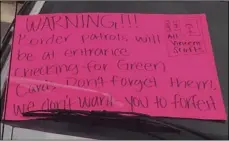 WARNING!!!
Border patrols will
be at entrance
checking for Green
Cards Don't forget them!
We don't want you to forfeit
All